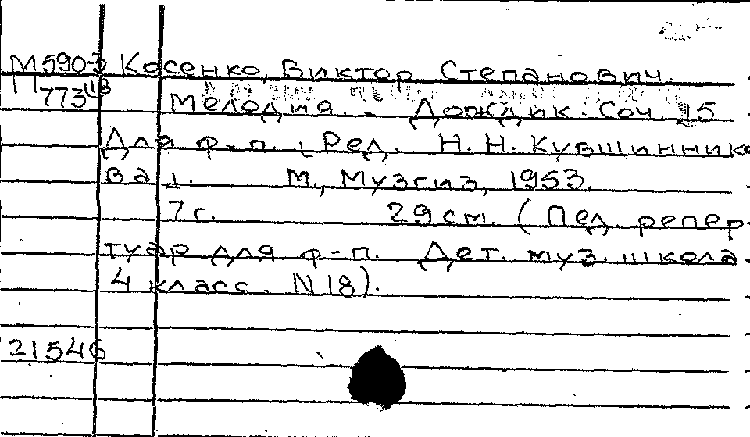 М590-3 Косенко, Виктор Степанович.
П 773 118 Мелодия. - Дождик. Соч. 15
Для ф.-п. [Ред. Н.Н. Кувшиннико
ва].  М., Музгиз, 1953.
7 с.  29 см. (Пед. репер-
туар для ф-п. Дет. муз. школа.
4 класс. N 18).
21546